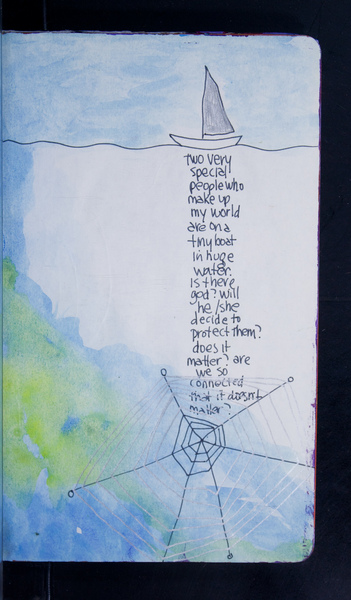 two very
special
people who
make up
my world
are on a
tiny boat
in huge
water.
is there
god? will
he/she
decide to
protect them?
does it
matter? are
we so
connected
that it doesn't
matter?